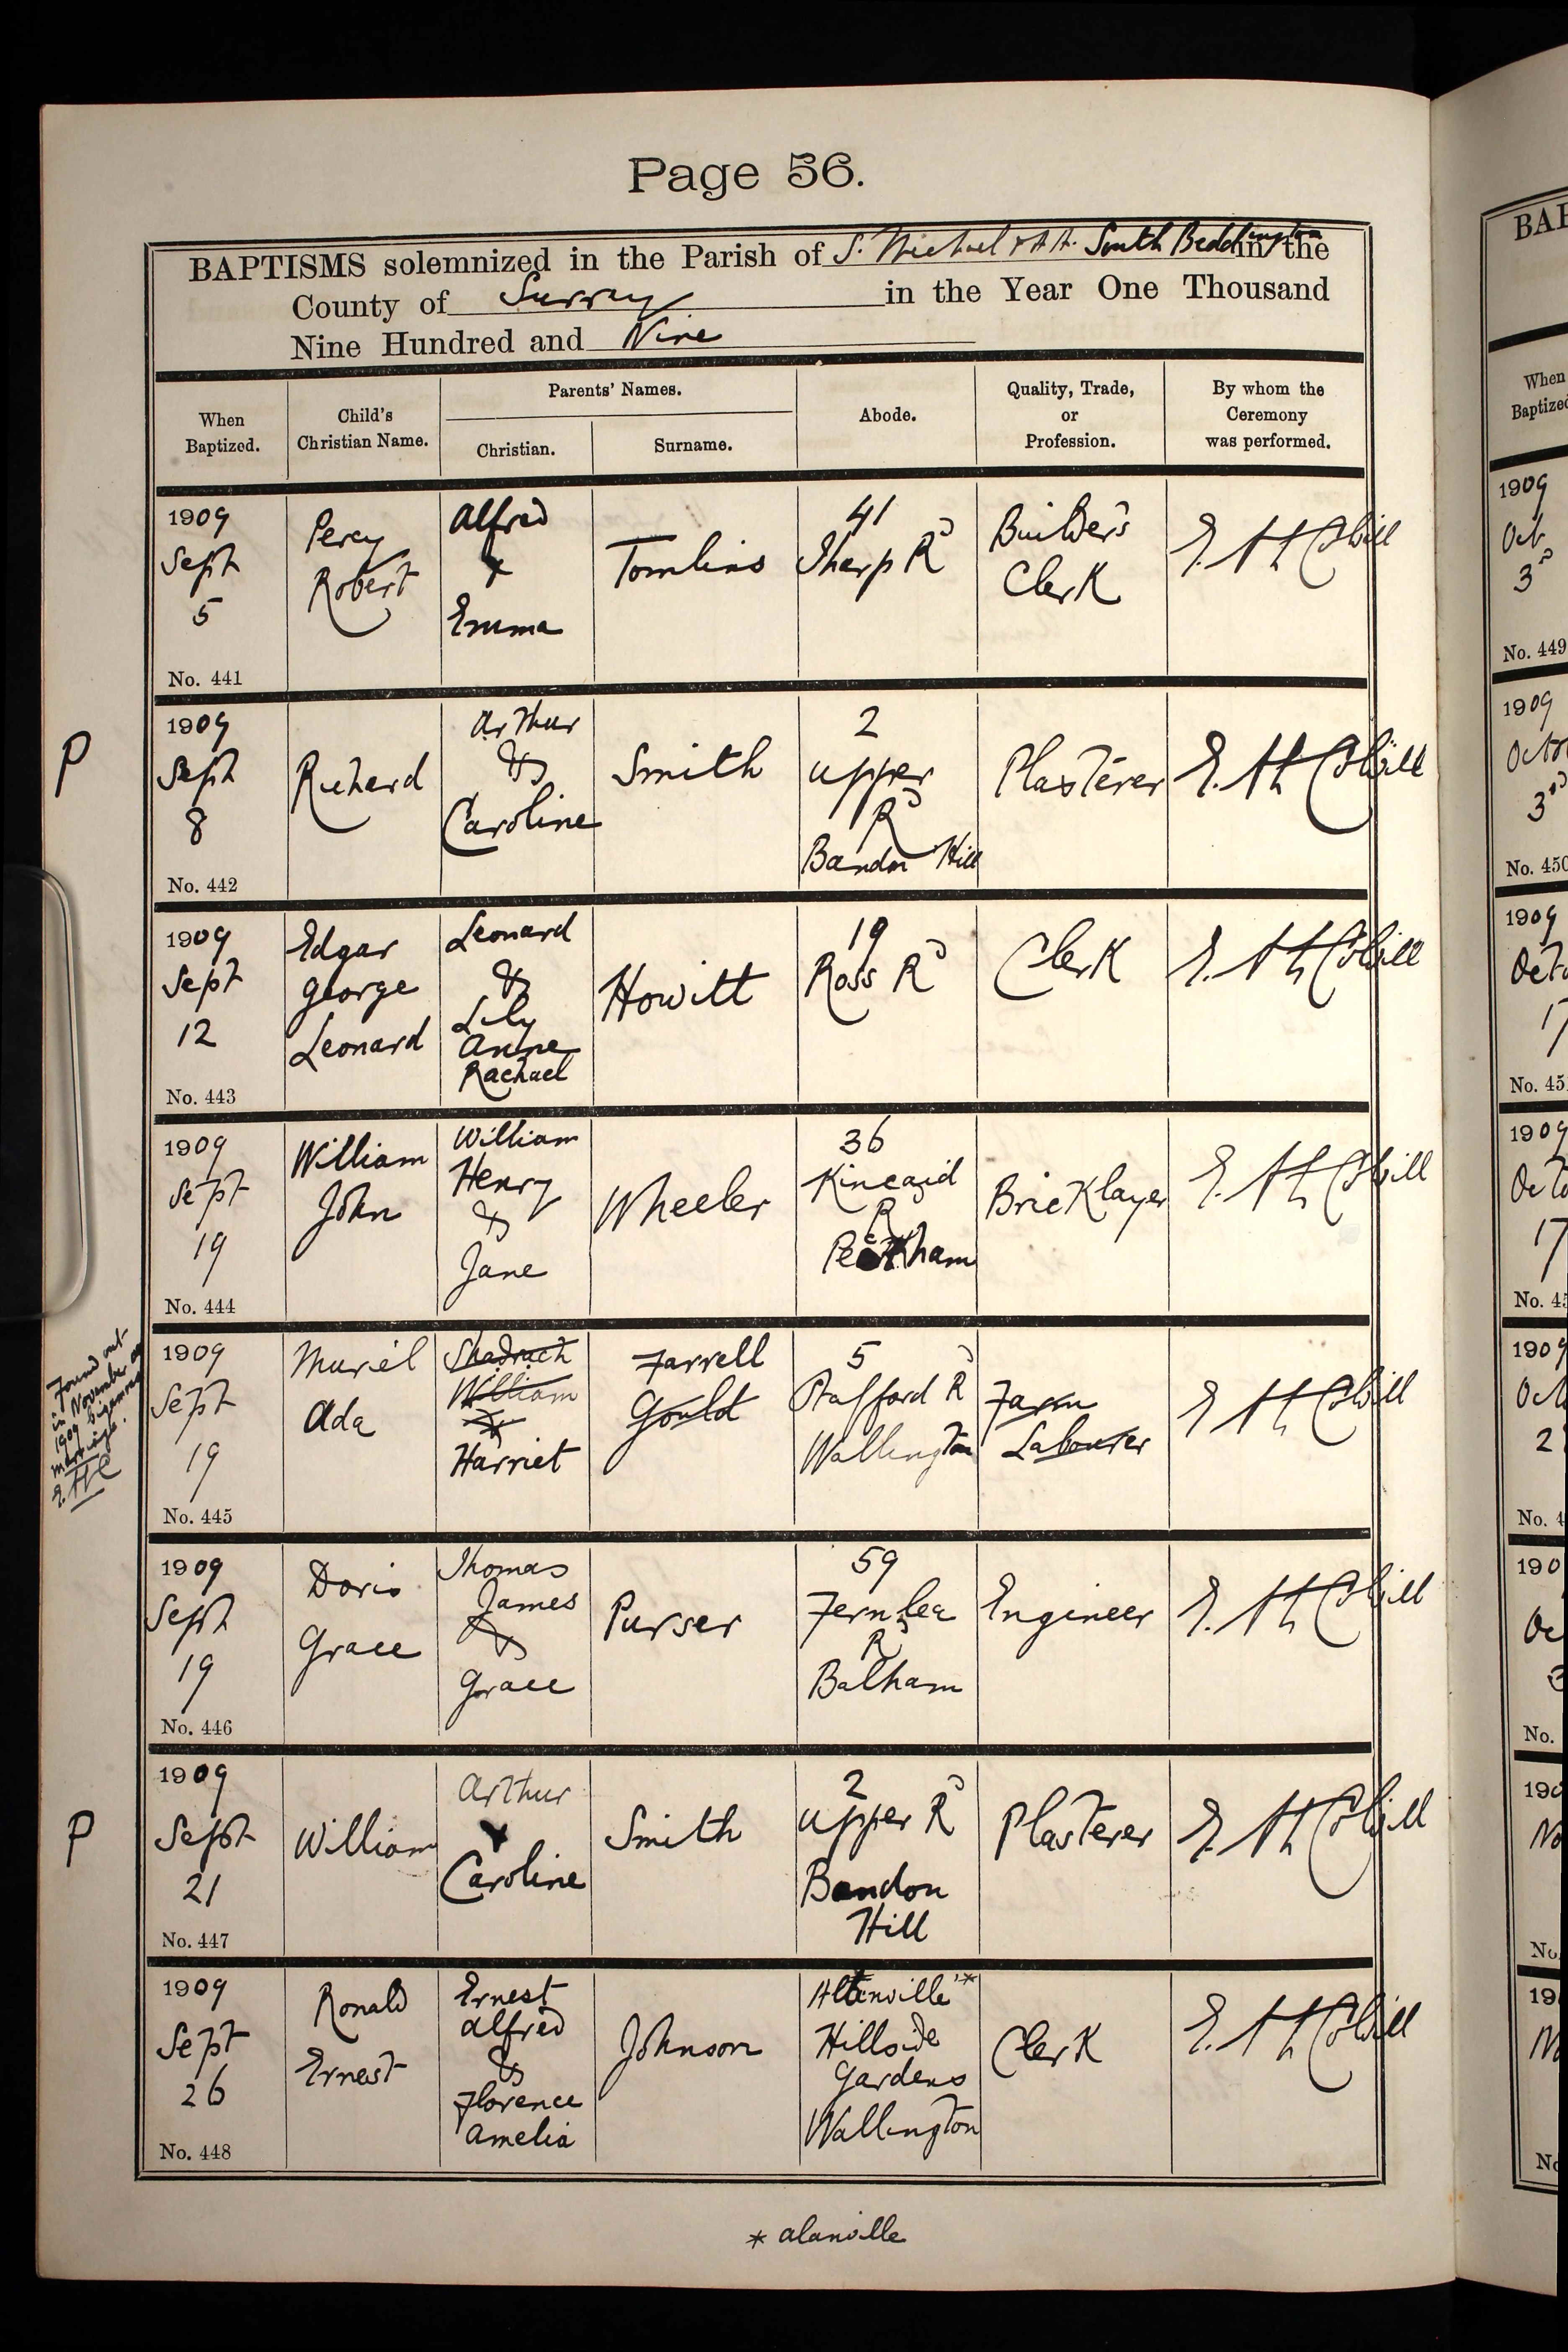 Page 56.
BAPTISMS solemnized in the Parish of S. Michael & A A. South Beddington in the
County of Surrey in the Year One Thousand
Nine Hundred and Nine
When Baptized.
Child's Christian Name.
Parents' Names.
Christian.
Surname.
Abode.
Quality, Trade, or Profession.
By whom the Ceremony was performed.
1909
Sept
5
No. 441
Percy
Robert
Alfred
&
Emma
Tomlins
41
Sharp Rd
Builder's
Clerk
E. H
P
1909
Sept
8
No. 442
Richard
Arthur
&
Caroline
Smith
2
Upper
Rd
Bandon Hill
Plasterer
E. H
1909
Sept
12
No. 443
Edgar
George
Leonard
Leonard
&
Lily
Anne
Rachael
Howitt
19
Ross Rd
Clerk
E. H
1909
Sept
19
No. 444
William
John
William
Henry
&
Jane
Wheeler
36
Kincaid
R
Peckham
Bricklayer
E. H
Found out
in November
1909 bigamous
marriage.
E.H.C
1909
Sept
19
No. 445
Muriel
Ada
Shadrach
William
&
Harriet
Farrell
Gould
5
Stafford Rd
Wallington
Farm
Labourer
E. H
1909
Sept
19
No. 446
Doris
Grace
Thomas
James
&
Grace
Purser
59
Fernlea
Rd
Balham
Engineer
E. H
P
1909
Sept
21
No. 447
William
Arthur
&
Caroline
Smith
2
Upper Rd
Bandon
Hill
Plasterer
E. H
1909
Sept
26
No. 448
Ronald
Ernest
Ernest
Alfred
&
Florence
Amelia
Johnson
Hillside
Gardens
Wallington
Clerk
E. H
* alanville
BAP
When
Baptized
1909
Oct
3rd
No. 449
1909
3rd
No. 450
1909
Octo
17
No. 45
1909
Octo
17
No. 45
1909
Oct
2
No. 4
190
Oc
3
No.
190
No
No
19
No
No